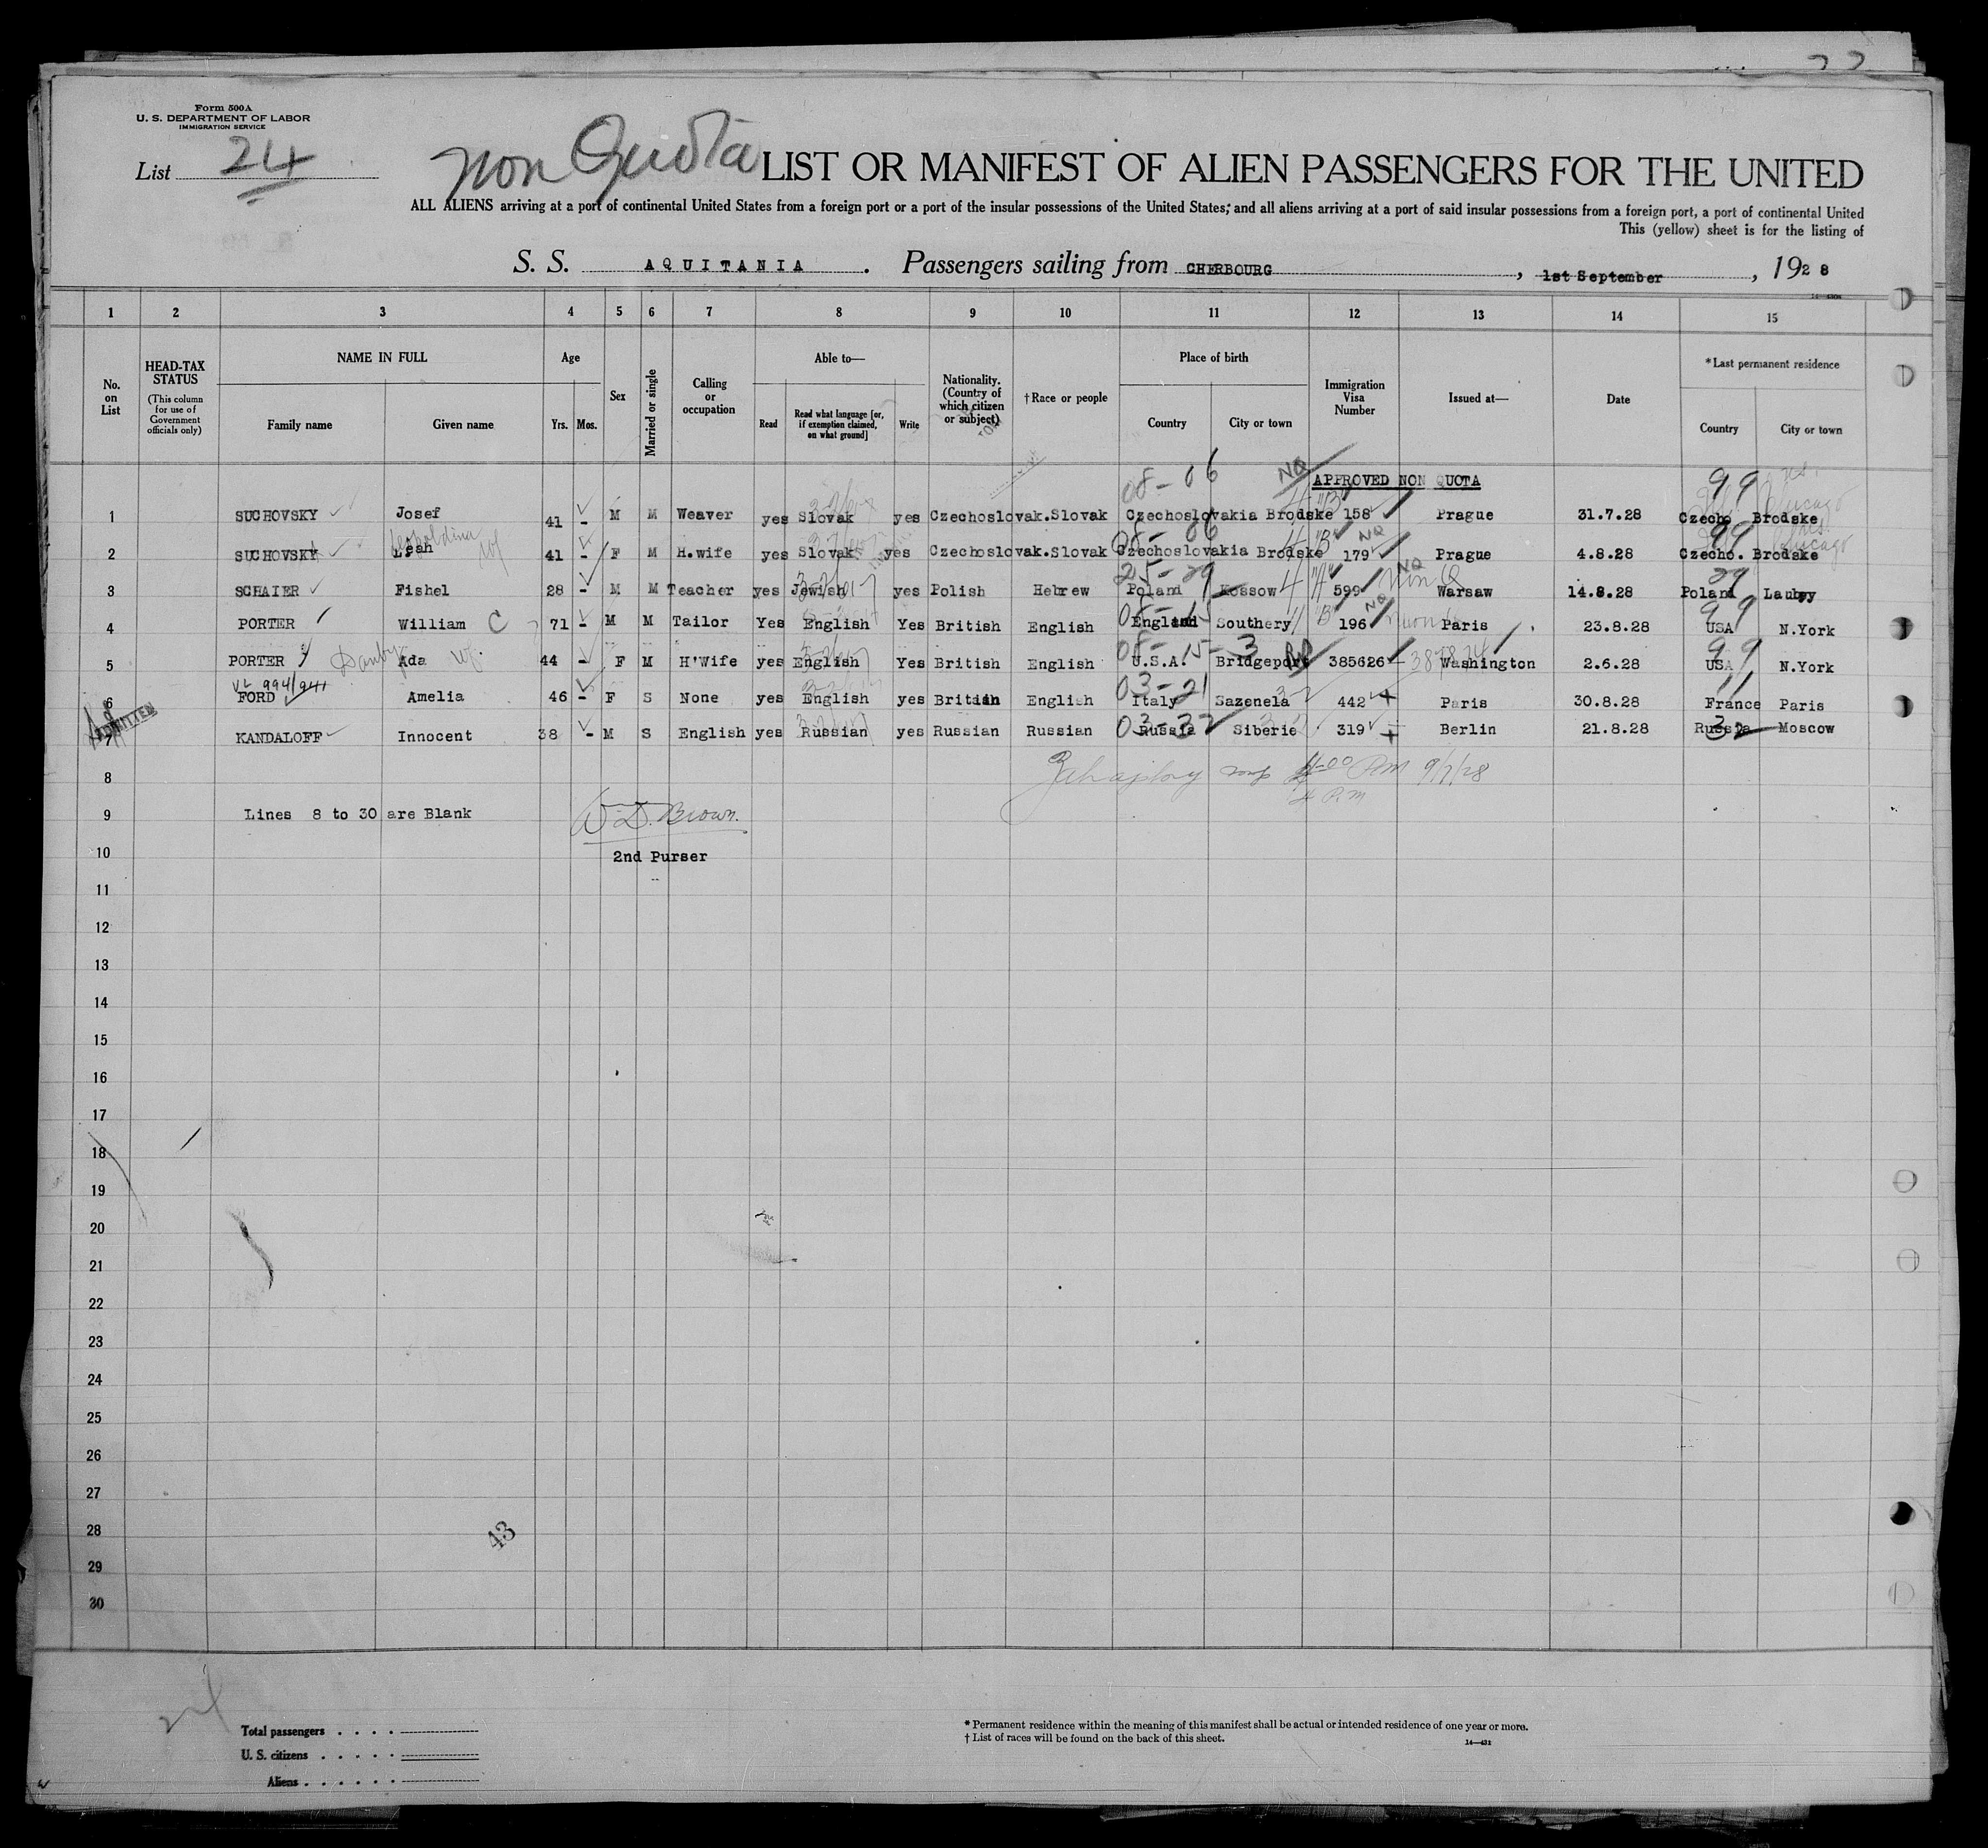 Form 500A
U. S. DEPARTMENT OF LABOR
IMMIGRATION SERVICE
List 24
Non Quota LIST OR MANIFEST OF ALIEN PASSENGERS FOR THE UNITED
ALL ALIENS arriving at a port of continental United States from a foreign port or a port of the insular possessions of the United States; and all aliens arriving at a port of said insular possessions from a foreign port, a port of continental United
This (yellow) sheet is for the listing of
S. S. AQUITANIA . Passengers sailing from CHERBOURG , 1st September , 1928
1 2 3 4 5 6 7 8 9 10 11 12 13 14 15
No. on List
HEAD-TAX STATUS
(This column for use of Government officials only)
NAME IN FULL
Family name Given name
Age
Yrs. Mos.
Sex
Married or single
Calling or occupation
Able to—
Read
Read what language [or, if exemption claimed, on what ground]
Write
Nationality. (Country of which citizen or subject)
†Race or people
Place of birth
Country City or town
Immigration Visa Number
Issued at—
Date
*Last permanent residence
Country City or town
08-06 NQ APPROVED NON QUOTA 99
1 SUCHOVSKY Josef 41 - M M Weaver yes Slovak yes Czechoslovak. Slovak Czechoslovakia Brodske 4 "B" 158 Prague 31.7.28 Czecho Brodske Chicago
08-06 NQ 99
2 SUCHOVSKY Leah Leopoldina wf 41 - F M H.wife yes Slovak yes Czechoslovak. Slovak Czechoslovakia Brodske 4 "B" 179 Prague 4.8.28 Czecho. Brodske Chicago
25-29 NQ
3 SCHAIER Fishel 28 - M M Teacher yes Jewish yes Polish Hebrew Poland Kossow 4 "A" 599 Non Q Warsaw 14.8.28 Poland
08-15 NQ 99
4 PORTER William C 71 - M M Tailor Yes English Yes British English England Southery 4 "B" 196 Paris 23.8.28 USA N.York
08-15-3 99
5 PORTER Danby Ada wf. 44 - F M H'Wife yes English Yes British English U.S.A. Bridgeport RP 385626 Washington 2.6.28 USA N.York
03-21
6 FORD Amelia 46 - F S None yes English yes British English Italy Sazenela 442 Paris 30.8.28 France Paris
ADMITTED 03-32 32
7 KANDALOFF Innocent 38 - M S English yes Russian yes Russian Russian Russia Siberie 319 Berlin 21.8.28 Russia Moscow
8 9/7/28
4 P.m
9 Lines 8 to 30 are Blank W. D. Brown.
10 2nd Purser
11
12
13
14
15
16
17
18
19
20
21
22
23
24
25
26
27
28 43
29
30
Total passengers . . . .
U. S. citizens . . . . .
Aliens . . . . . .
* Permanent residence within the meaning of this manifest shall be actual or intended residence of one year or more.
† List of races will be found on the back of this sheet.
14—431